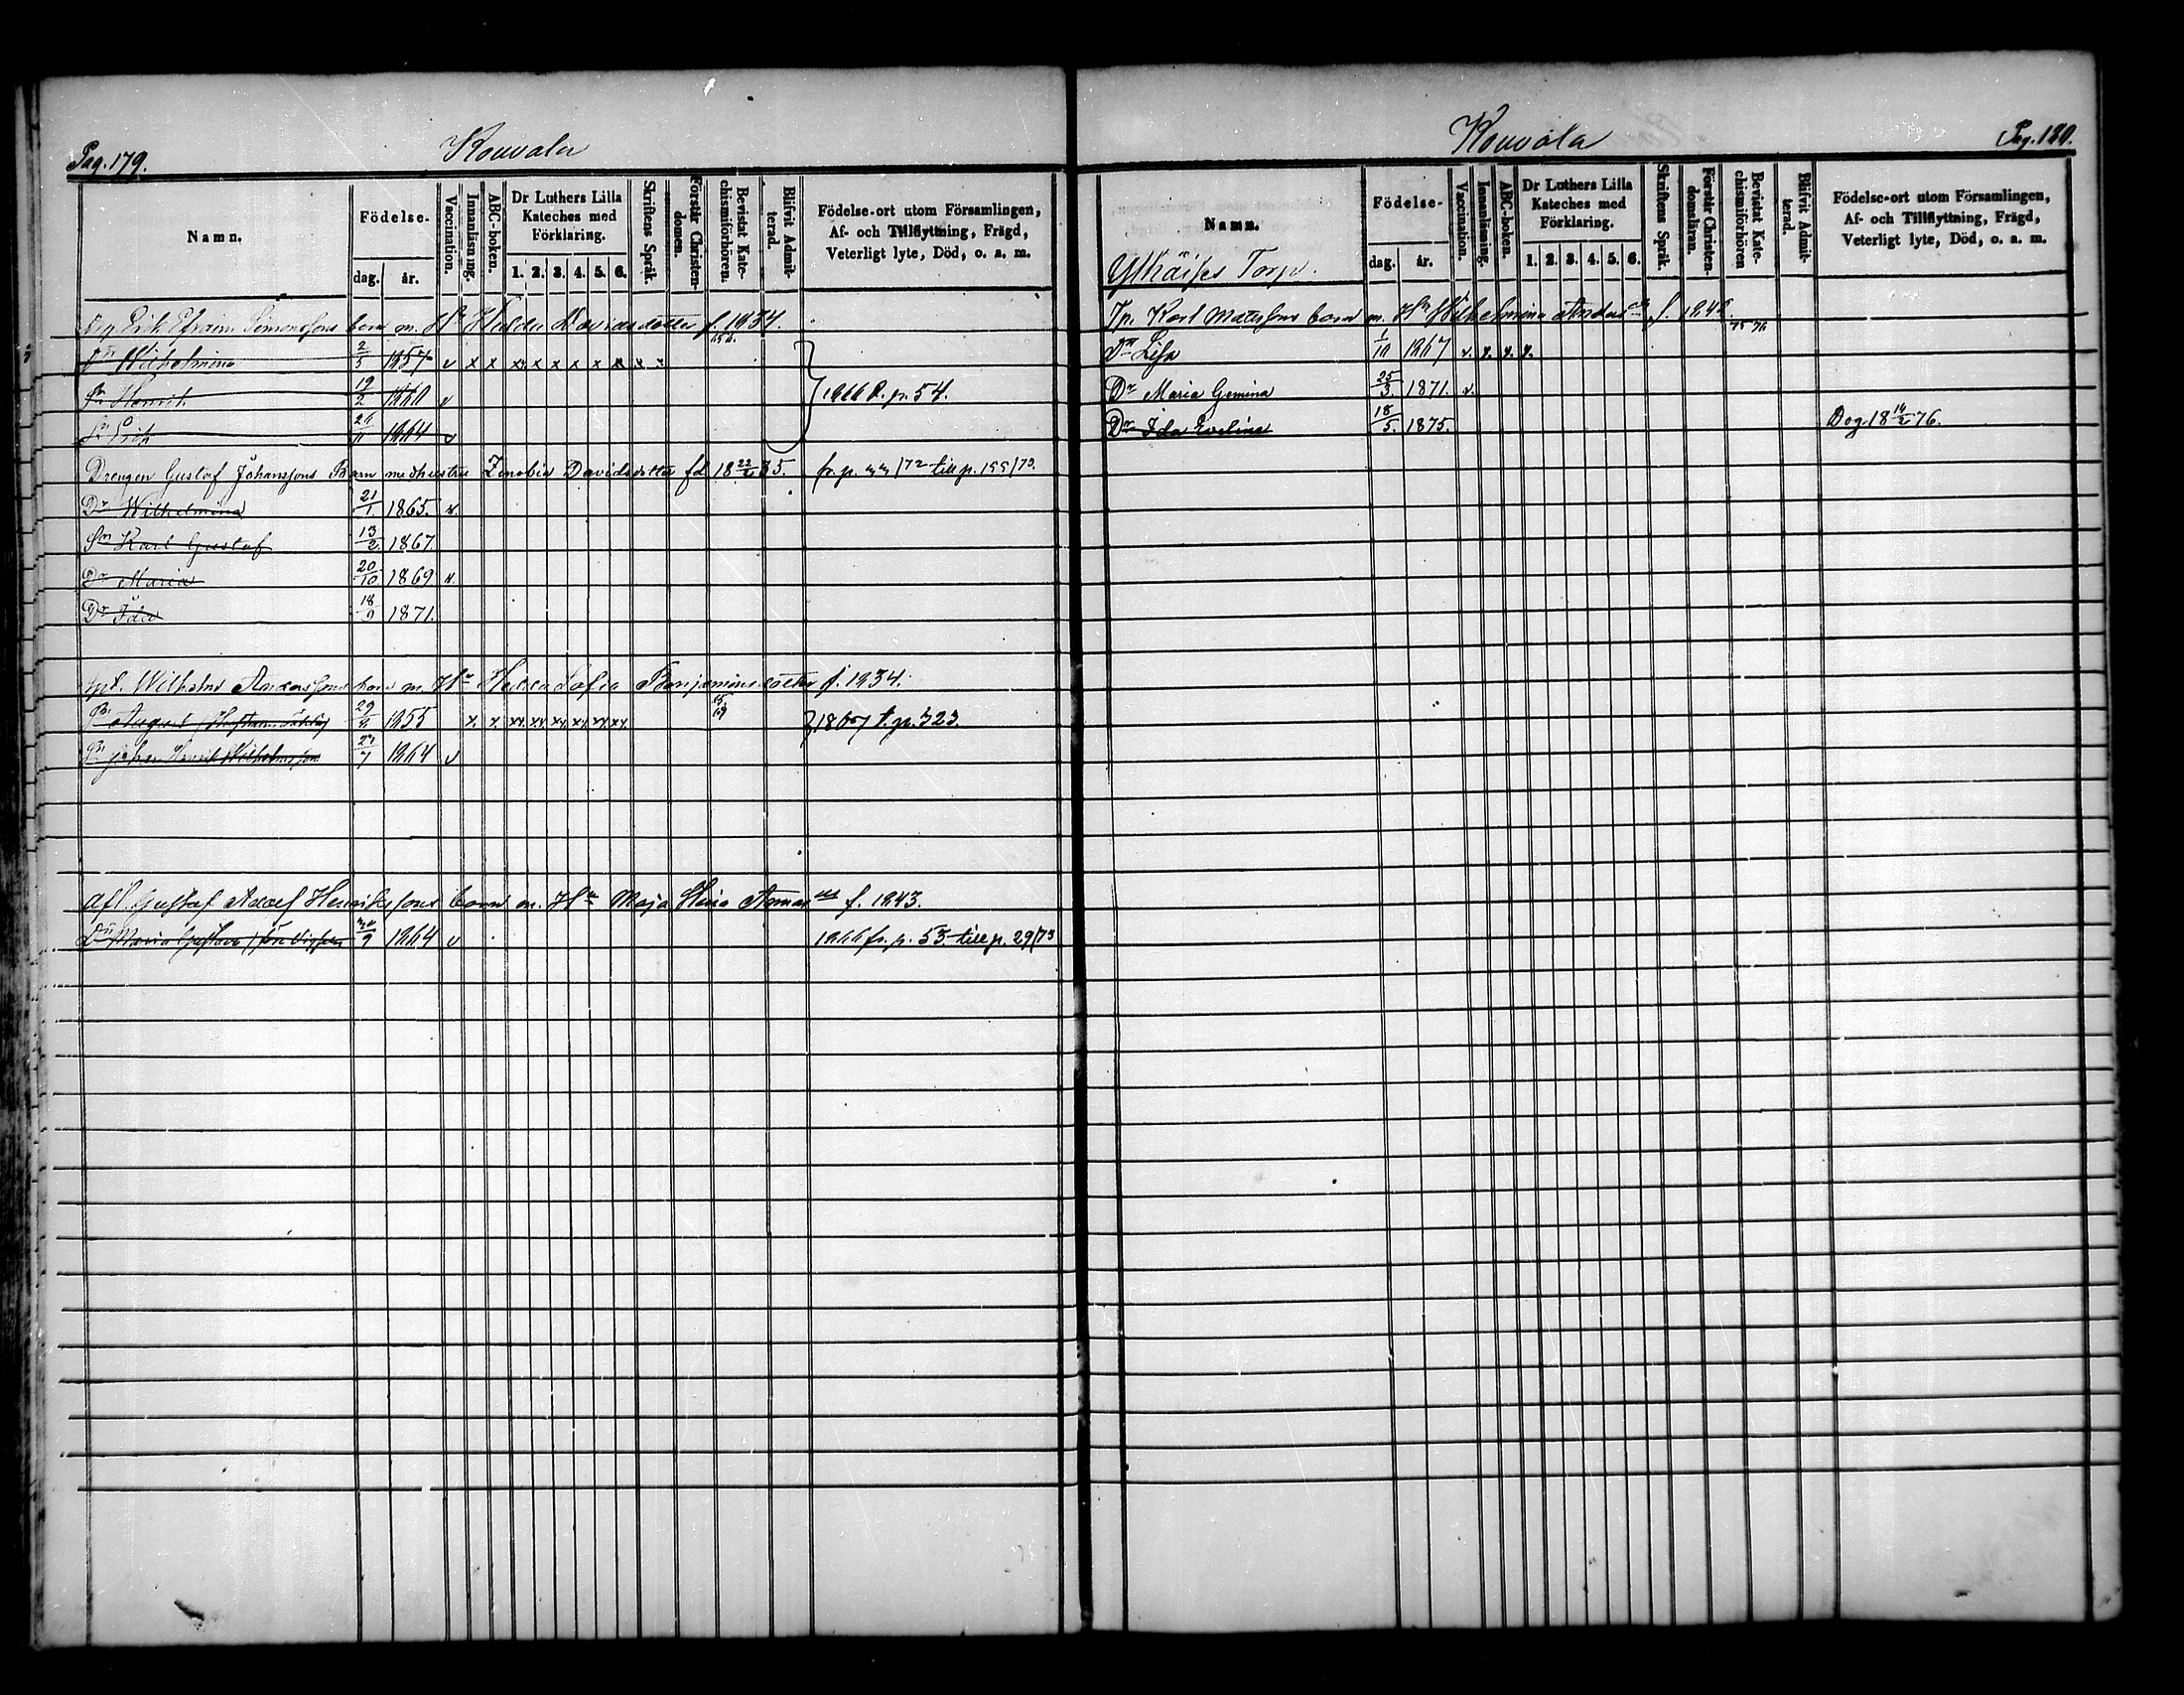 Pag. 179.
Kouvala
Namn.
Födelse-
dag. år.
Vaccination.
Innanläsning.
ABC-boken.
Dr Luthers Lilla Kateches med Förklaring.
1. 2. 3. 4. 5. 6.
Skriftens Språk.
Förstår Christendomen.
Bevistat Katechismiförhören.
Blifvit Admitterad.
Födelse-ort utom Församlingen,
Af- och Tillflyttning, Frägd,
Veterligt lyte, Död, o. a. m.
Erik Efraim Simonssons barn m. Hu Hedda Davidsdotter f. 1834.
Dr Wilhelmina 2/5 1857 v x x x x x x x x x x
Sn Henrik 19/2 1860 v 1866 fr. p. 54.
Sn Erik 1864 v
Drengen Gustaf Johanssons Barn med hustru Zenobia Davidsdotter fd 18 22/2 35. fr. p. /72 till p. 155/73.
Dr Wilhelmina 21/1 1865. v
Sn Karl Gustaf 13/2 1867.
Dr Maria 20/10 1869 v.
Dr Ida 18/9 1871.
Wilhelm Anderssons barn m. Hu Hedda Sofia Benjaminsdotter f. 1834.
Sn August 29/8 1855 x x xx xx xx xx xx xx 1867 t. p. 323.
Sn Johan Henrik Wilhelmsson 1864 v
Afl. Gustaf Adolf Henrikssons barn m. Hu Maja Stina f. 1843.
Dr Maria Gustava 1864 v 1866 fr. p. 53 till p. 29/73
Pag. 180.
Kouvola
Namn.
Födelse-
dag. år.
Vaccination.
Innanläsning.
ABC-boken.
Dr Luthers Lilla Kateches med Förklaring.
1. 2. 3. 4. 5. 6.
Skriftens Språk.
Förstår Christendomsläran.
Bevistat Katechismiförhören
Blifvit Admitterad.
Födelse-ort utom Församlingen,
Af- och Tillflyttning, Frägd,
Veterligt lyte, Död, o. a. m.
Torp.
Tp. Karl Matssons barn m. Hu Wilhelmina f. 1842.
75 76
Dr Lisa 1/10 1867 v. x. x. x.
Dr Maria Gemina 25/3. 1871. v.
Dr Ida Evelina 18/5. 1875. Dog 18 14/2 76.